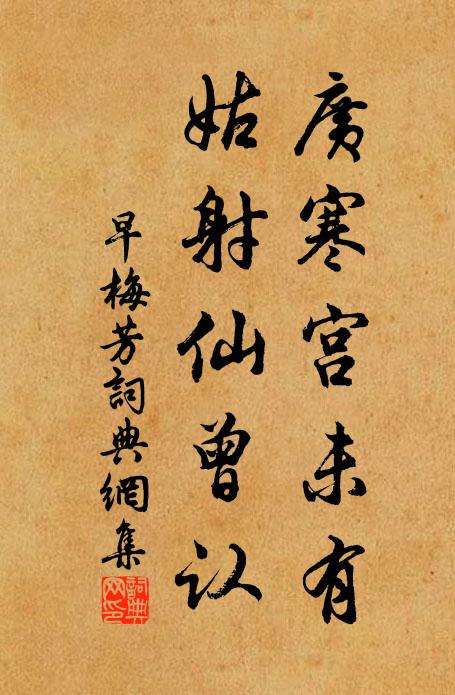 廣寒宫未有
姑射仙曾认
早梅芳詞典網集
詞典網印